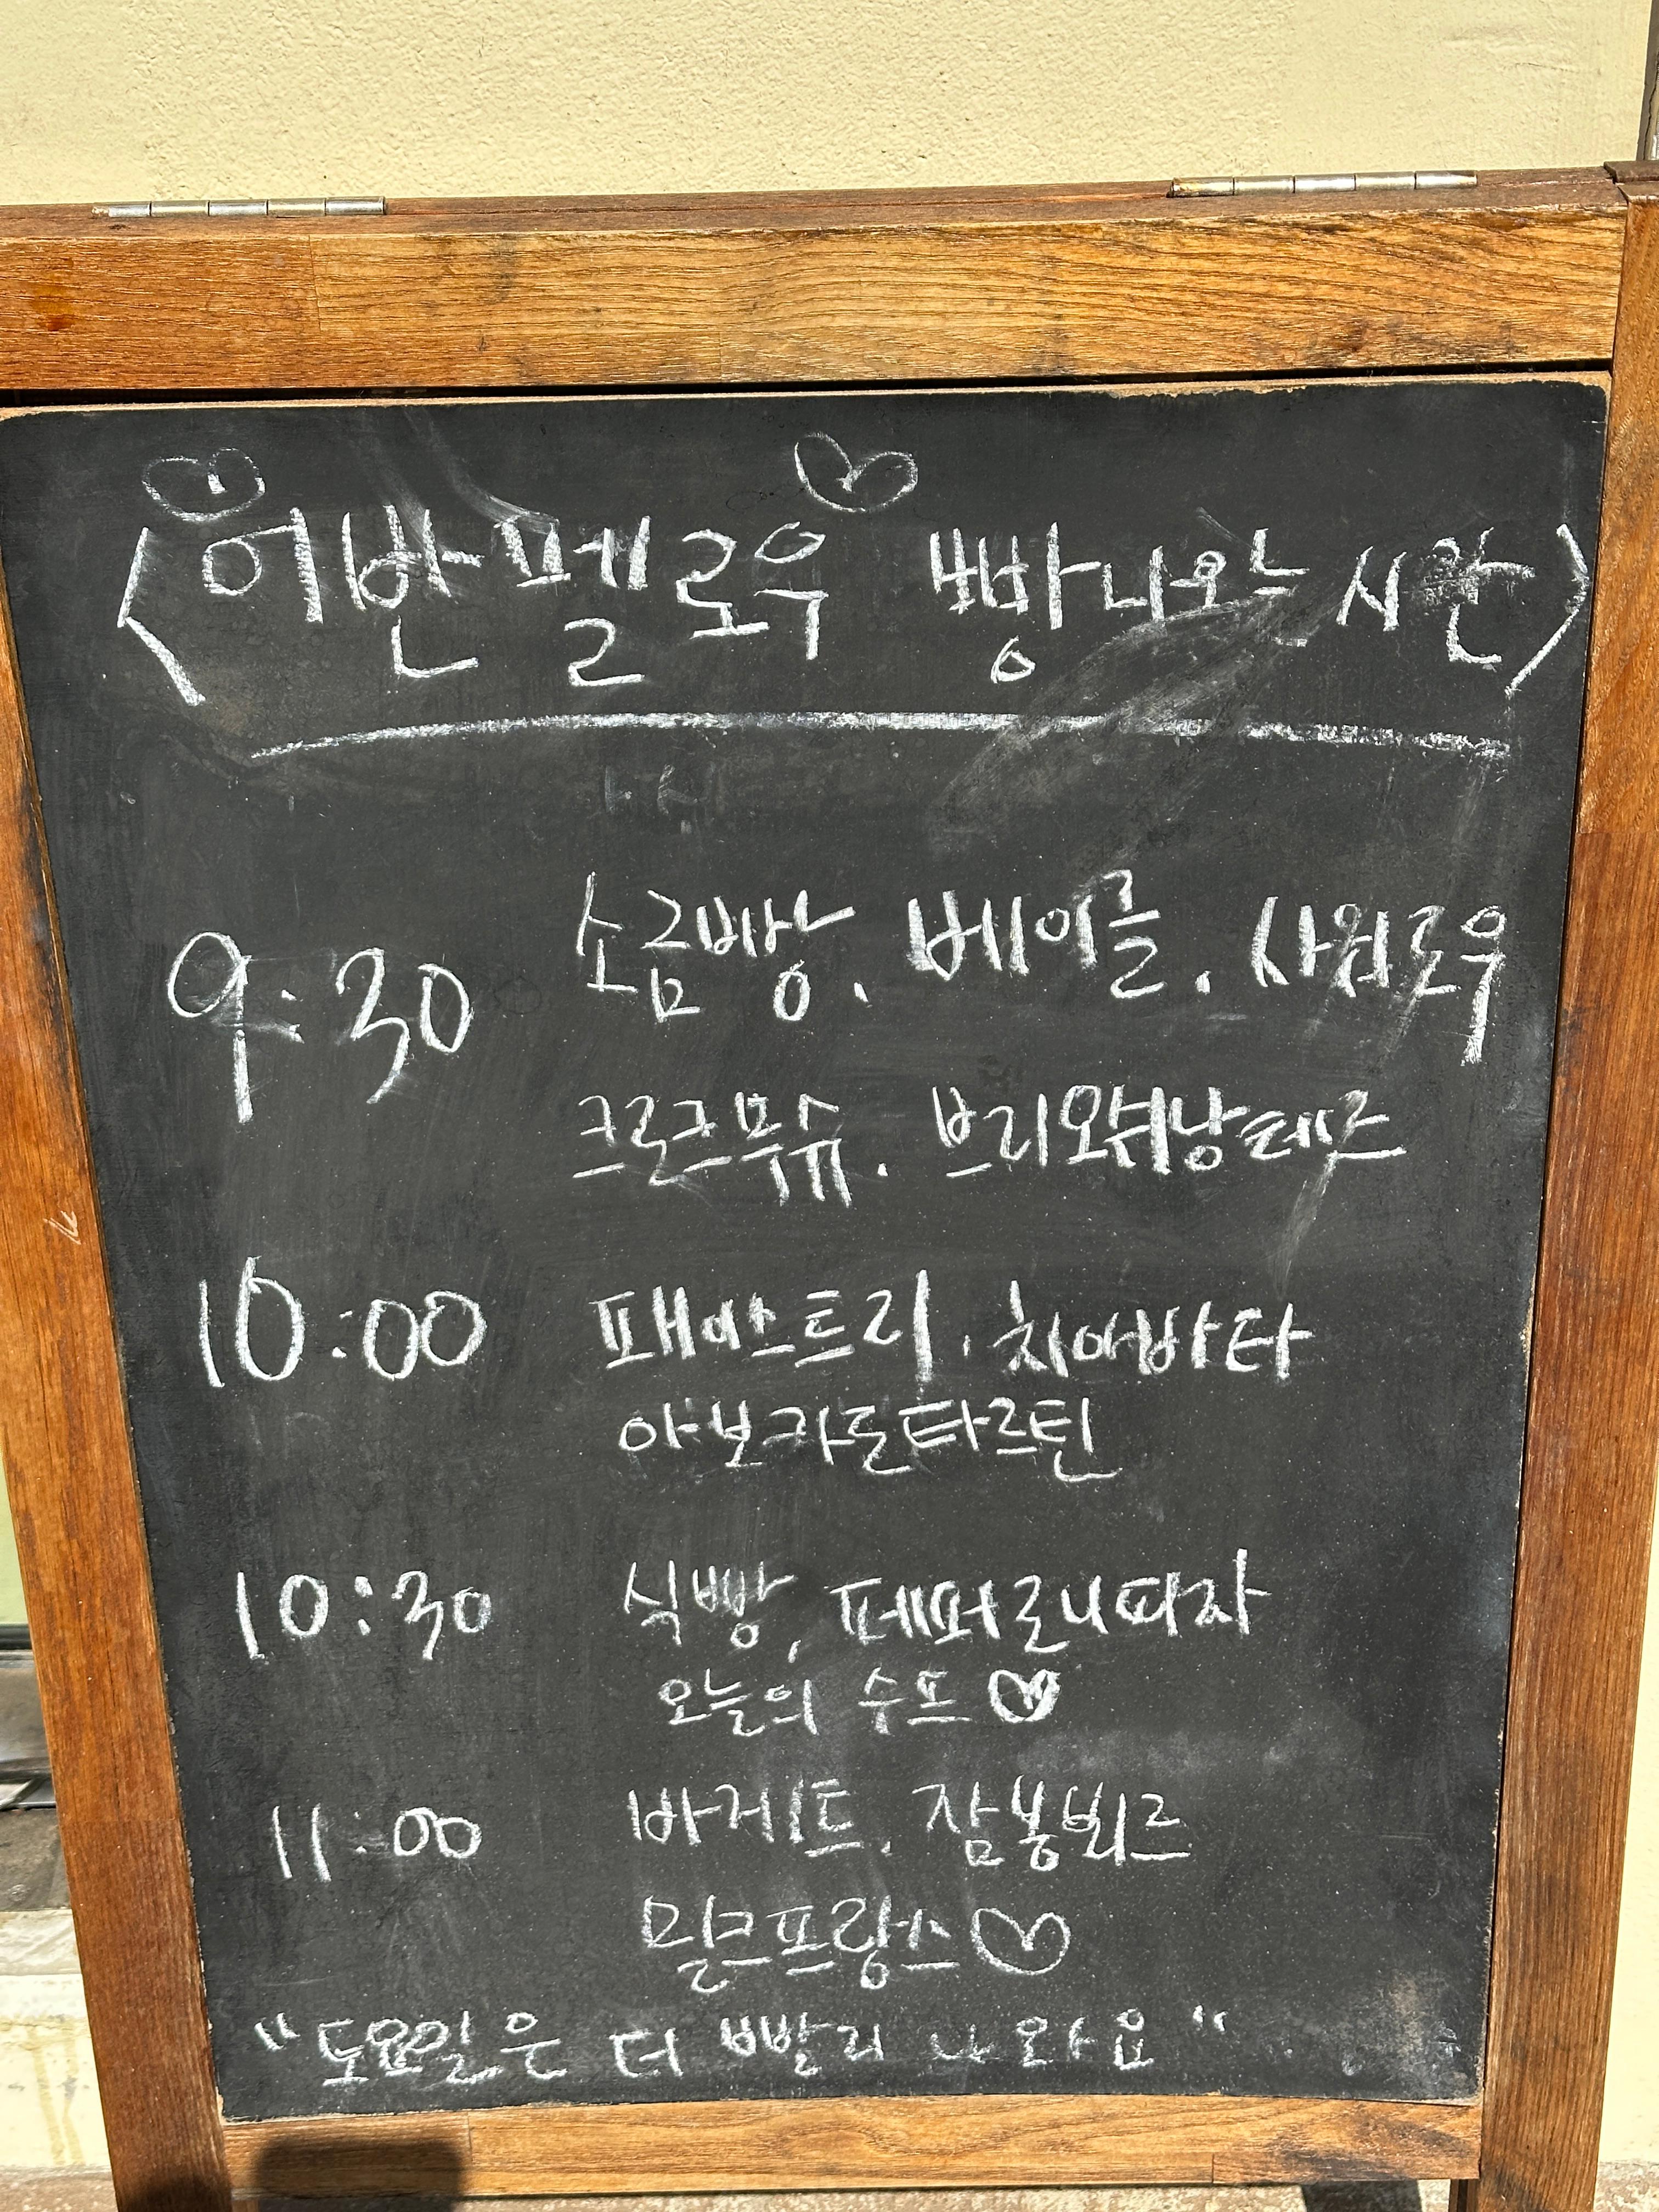 <어반펠로우 빵나오는시간>
9:30 소금빵, 베이글, 사워로우
크로크무슈, 브리오쉬낭테르
10:00 패이스트리, 치아바타
아보카도타르틴
10:30 식빵, 페퍼로니피자
오늘의 수프♡
11:00 바게트, 잠봉뵈르
밀크프랑스♡
"토요일은 더 빨리 나와요"